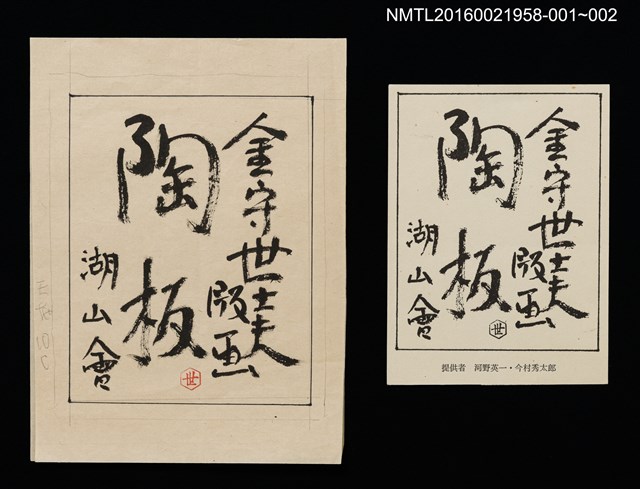 NMTL20160021958-001~002
金守世士夫
版画
陶板
湖山會
世
金守世士夫
版画
陶板
湖山會
世
提供者 河野英一・今村秀太郎